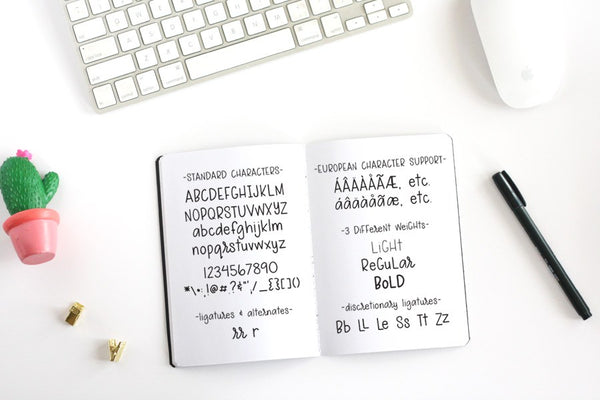 -STANDARD CHARACTERS-
ABCDEFGHIJKLM
NOPQRSTUVWXYZ
abcdefghijklm
nopqrstuvwxyz
1234567890
-ligatures & alternates-
rr r
-EUROPEAN CHARACTER SUPPORT-
ÁÂÄÀÅÃÆ, etc.
áâäàåãæ, etc.
-3 Different Weights-
LiGHt
ReGuLar
BoLD
-discretionary ligatures-
Bb LL Le Ss Tt Zz